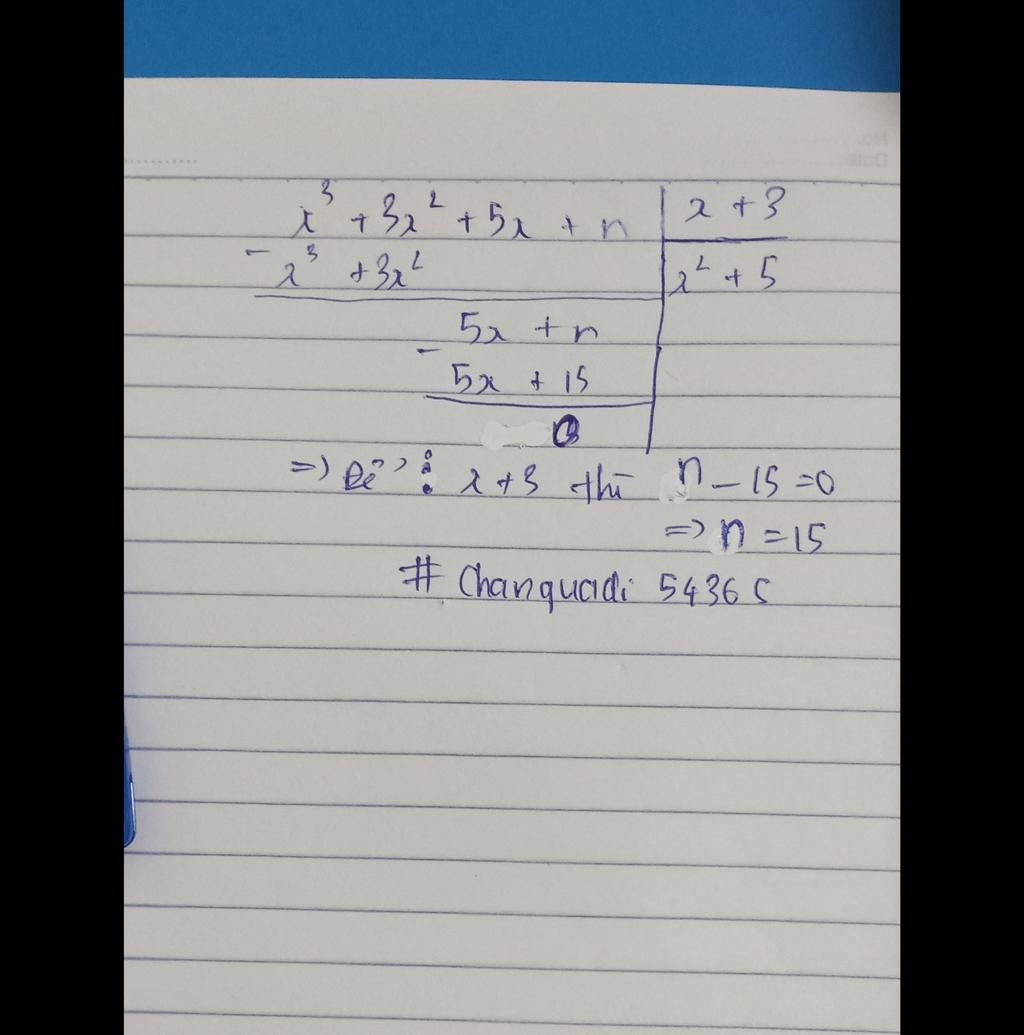 x³ + 3x² + 5x + n | x + 3
- x³ + 3x² | x² + 5
5x + n
- 5x + 15
0
=> Để ⋮ x + 3 thì n - 15 = 0
=> n = 15
# Chanquadi 5436